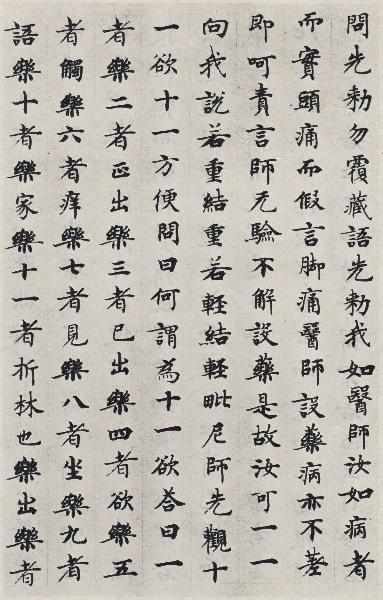 問先勑勿覆藏語先勑我如醫師汝如病者
而實頭痛而假言脚痛醫師設藥病亦不差
即呵責言師无驗不解設藥是故汝可一一
向我說若重結重若輕結輕毗尼師先觀十
一欲十一方便問曰何謂為十一欲荅曰一
者樂二者正出樂三者已出樂四者欲樂五
者觸樂六者痒樂七者見樂八者坐樂九者
語樂十者樂家樂十一者折林也樂出樂者